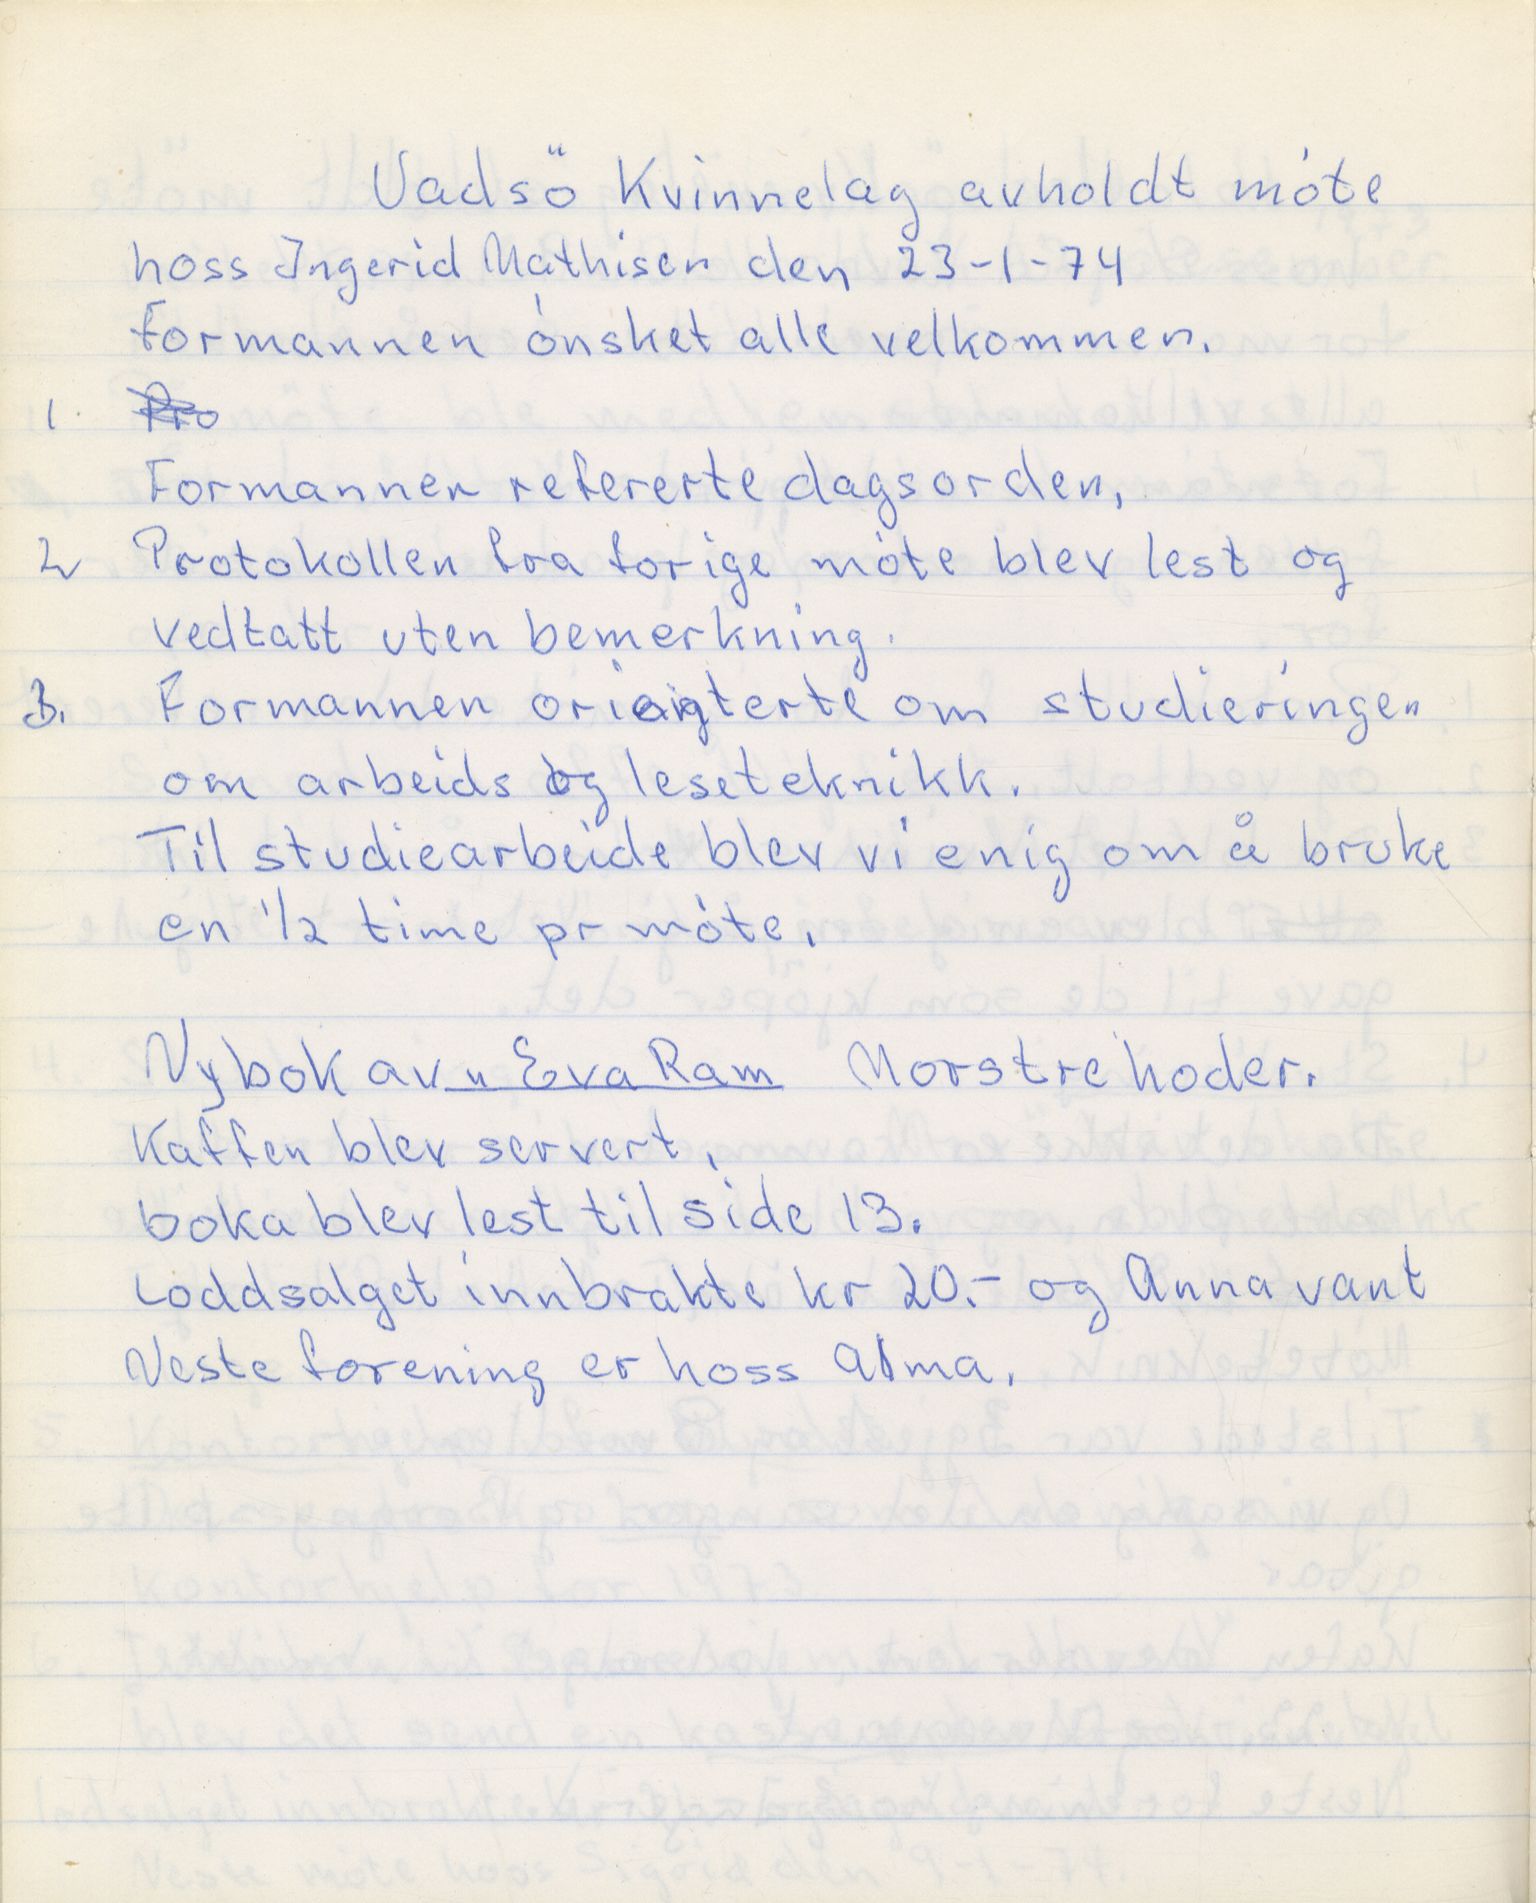 Vadsö Kvinnelag avholdt móte
hoss Ingerid Mathisen den 23-1-74
formannen ónsket alle velkommen.
1. Pro
Formannen refererte dagsorden,
2 Protokollen fra forige móte blev lest og
vedtatt uten bemerkning.
3. Formannen oriengterte om studieringen
om arbeids og leseteknikk.
Til studiearbeide blev vi enig om å bruke
en 1/2 time pr móte.
Ny bok av " Eva Ram Norstrehoder.
Kaffen blev servert,
boka blev lest til side 13.
Loddsalget innbrakte kr 20.- og Anna vant
Neste forening er hoss Alma.